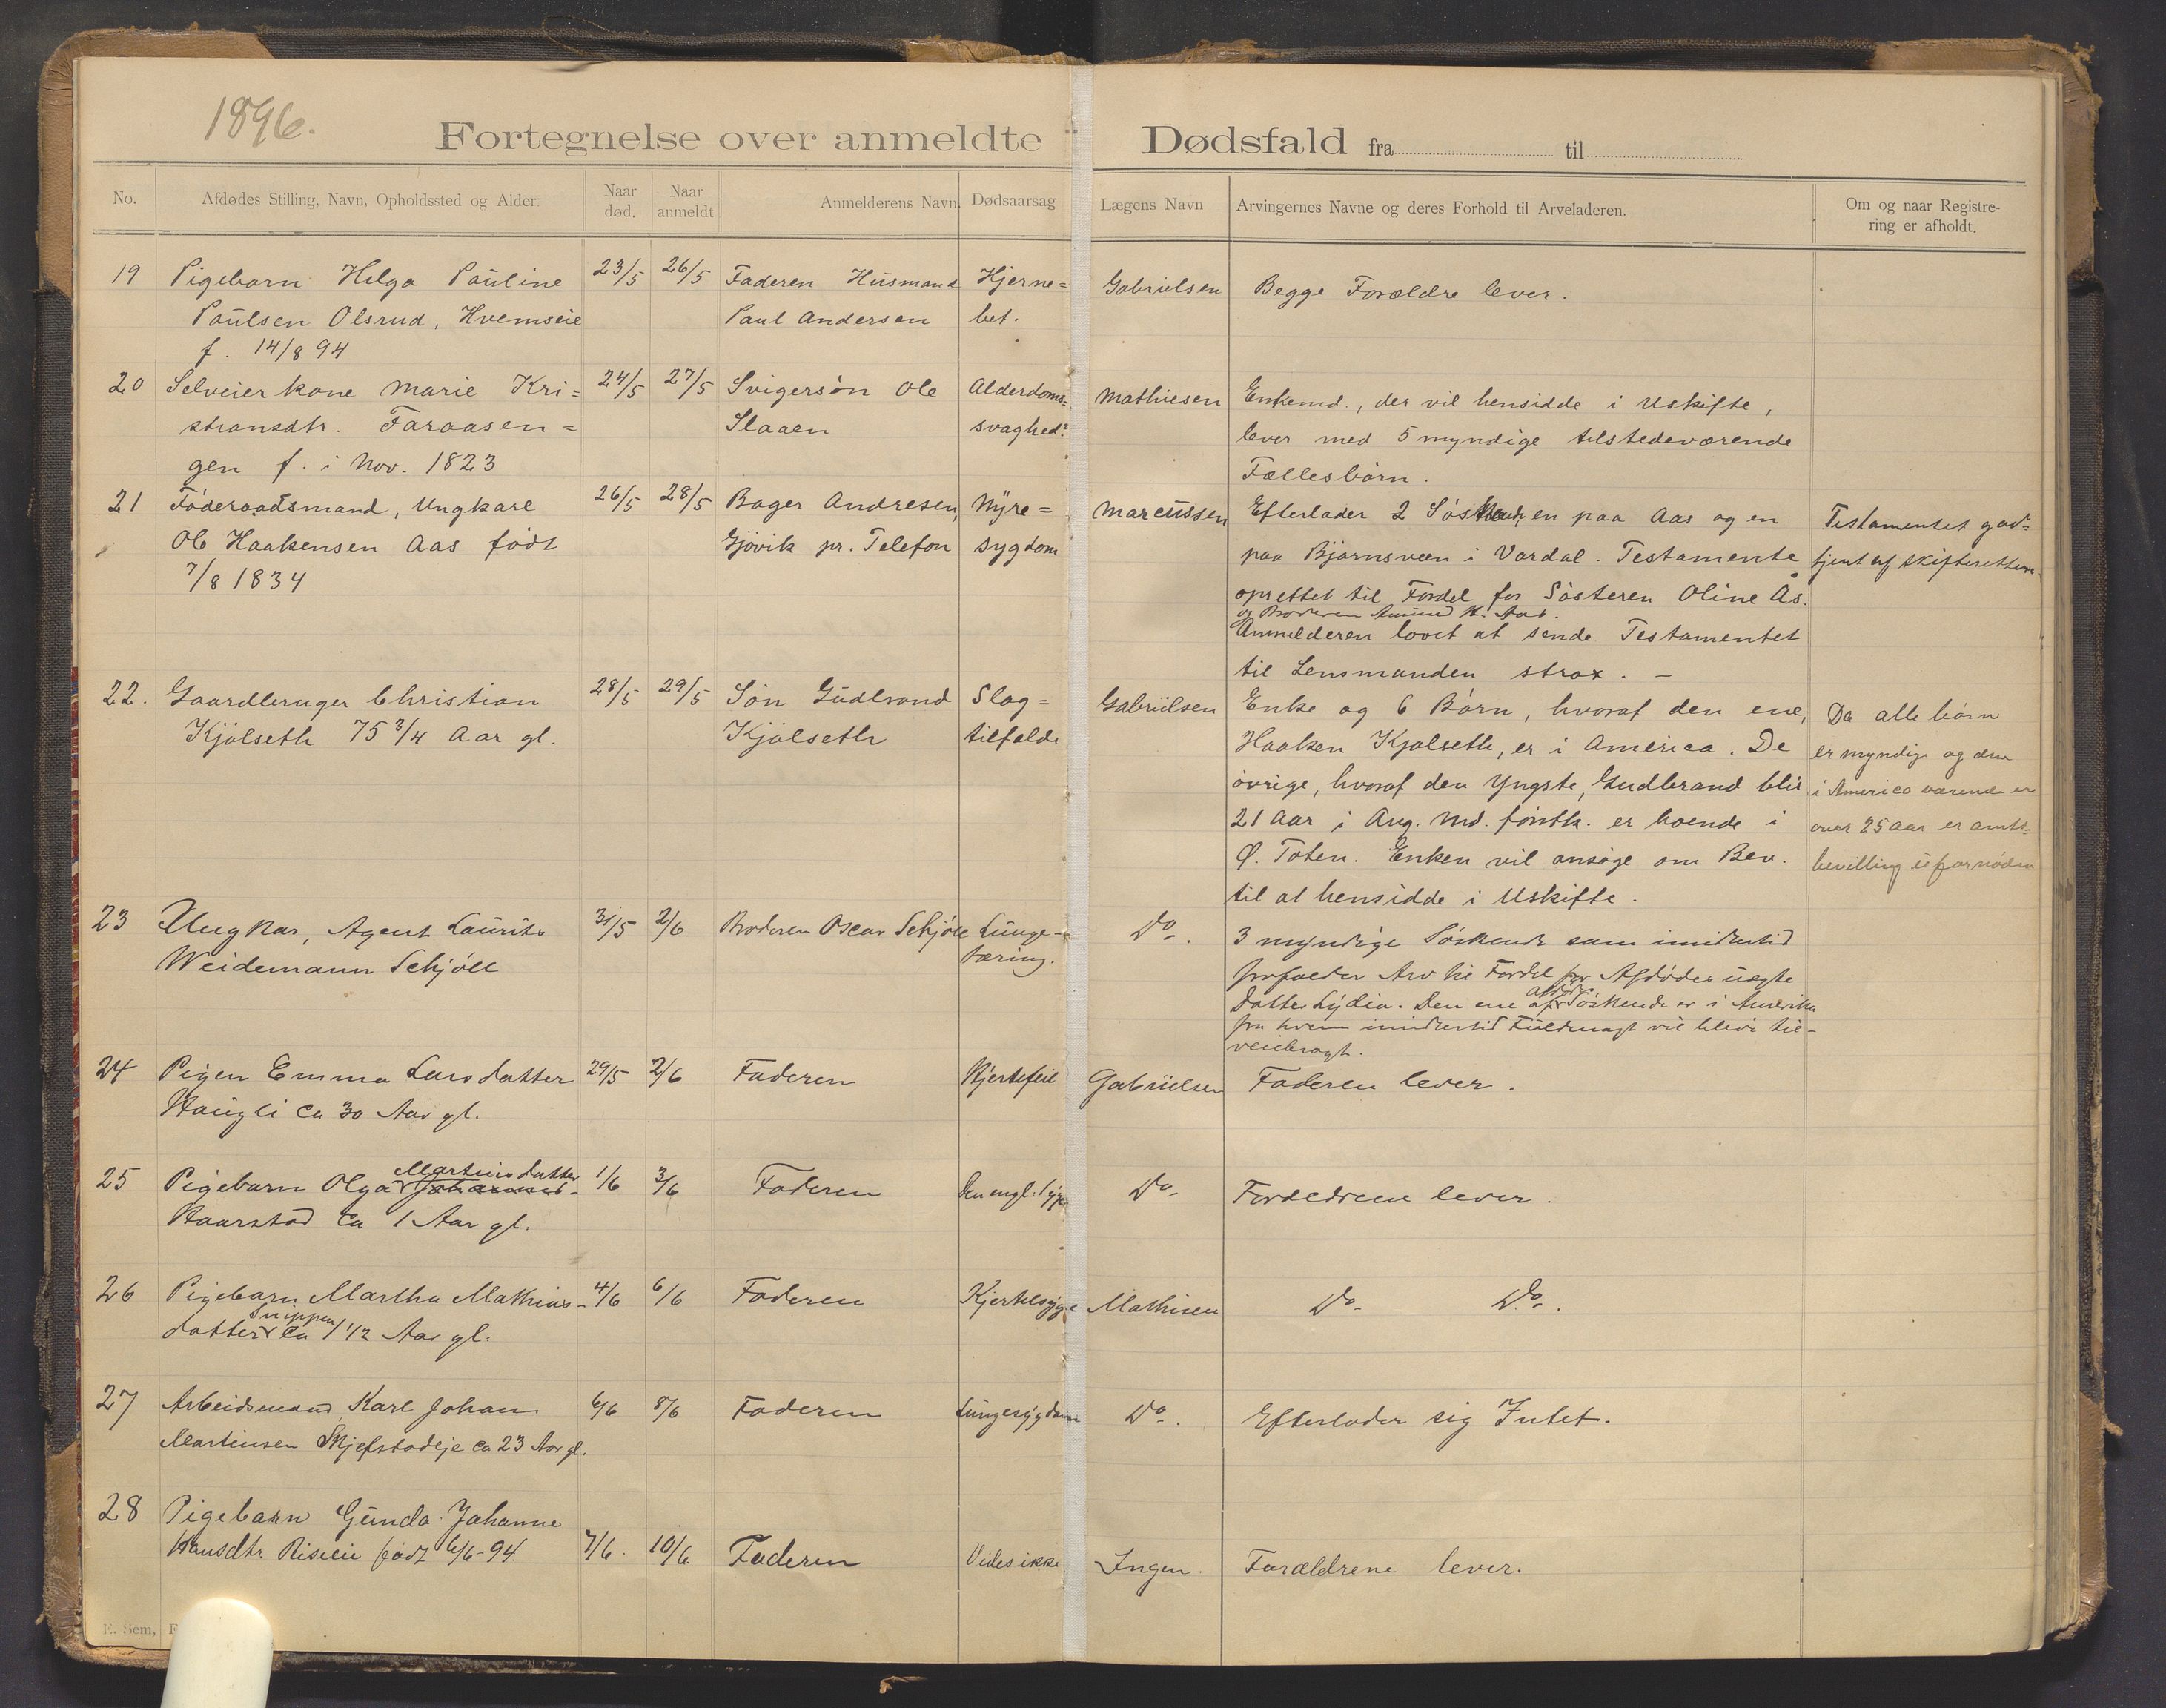 1896.
Fortegnelse over anmeldte Dødsfald fra til
No.
Afdødes Stilling, Navn, Opholdssted og Alder.
Naar død.
Naar anmeldt
Anmelderens Navn
Dødsaarsag
Lægens Navn
Arvingernes Navne og deres Forhold til Arveladeren.
Om og naar Registre-
ring er afholdt.
19 Pigebarn Helga Pauline 23/5 26/5 Faderen Husmand Hjerne= Gabrielsen Begge Forældre lever.
Paulsen Olsrud, Hvemseie Paul Andersen bet.
f. 14/8 94
20 Selveierkone Marie Kri= 24/5 27/5 Svigersön Ole Alderdoms= Mathiesen Enkemd., der vil hensidde i Uskifte,
stiansdtr. Faraasen= Slaaen svaghed. lever med 5 myndige tilstedeværende
gen f. i Nov. 1823 Fællesbörn.
21 Föderaadsmand, Ungkarl 26/5 28/5 Bager Andresen, Nyre= Marcussen Efterlader 2 Söskende, en paa Aas og en Testamentet god=
Ole Haakensen Aas födt Gjövik pr. Telefon sygdom paa Bjørnsveen i Vardal. Testamente tjent af skifteretten.
7/8 1834 oprettet til Fordel for Sösteren Oline Ås.
og Broderen Amund H. Aas.
Anmelderen lovet at sende Testamentet
til Lensmanden strax. –
22. Gaardbruger Christian 28/5 29/5 Sön Gudbrand Slag= Gabrielsen Enke og 6 Börn, hvoraf den ene, Da alle börn
Kjölseth 75 3/4 Aar gl. Kjölseth tilfælde Haaken Kjölseth, er i America. De er myndige og den
övrige, hvoraf den Yngste, Gudbrand blir i America værende er
21 Aar i Aug. Md. förstk. er boende i over 25 aar er amts=
Ø. Toten. Enken vil ansöge om Bev. bevilling ufornöden
til at hensidde i Uskifte.
23 Ungkar, Agent Laurits 31/5 2/6 Broderen Oscar Schjöll Lunge- Do. 3 myndige Söskende som imidlertid
Weidemann Schjöll tæring. frafalder Arv til Fordel for Afdödes uægte
Datter Lydia. Den ene af Afdödes Söskende er i Amerika
fra hvem imidlertid Fuldmagt vil blive til-
veiebragt.
24 Pigen Emma Larsdatter 29/5 2/6 Faderen Hjertefeil Gabrielsen Faderen lever.
Haugli ca 30 Aar gl.
25 Pigebarn Olga Martinsdatter 1/6 3/6 Faderen Den engl. Syge Do Forældrene lever.
Haarstad ca 1 Aar gl.
26 Pigebarn Martha Mathias- 4/6 6/6 Faderen Kjertelsyge Mathisen Do Do.
datter Snippen ca 1 1/2 Aar gl.
27 Arbeidsmand Karl Johan 6/6 8/6 Faderen Lungesygdom Do. Efterlader sig Intet.
Martinsen Skjefstadeje ca 23 Aar gl.
28 Pigebarn Gunda Johanne
Hansdtr. Riseeie född 6/6-94. 7/6. 10/6. Faderen Vides ikke Ingen. Forældrene lever.
E. Sem, F